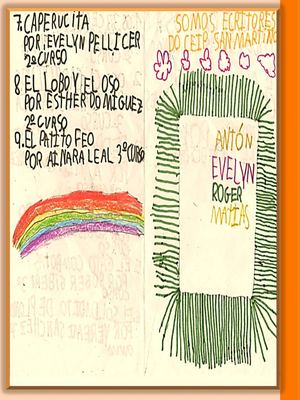 7. CAPERUCITA
POR, EVELYN PELLICER
2º CURSO
8 EL LOBO Y EL OSO
POR ESTHER DOMIGUEZ
2º CURSO
9. EL PATITO FEO
POR AINARA LEAL 3º CURSO
SOMOS ECRITORES
DO CEIP SAN MARTIÑO
ANTÓN
EVELYN
ROGER
MATIAS